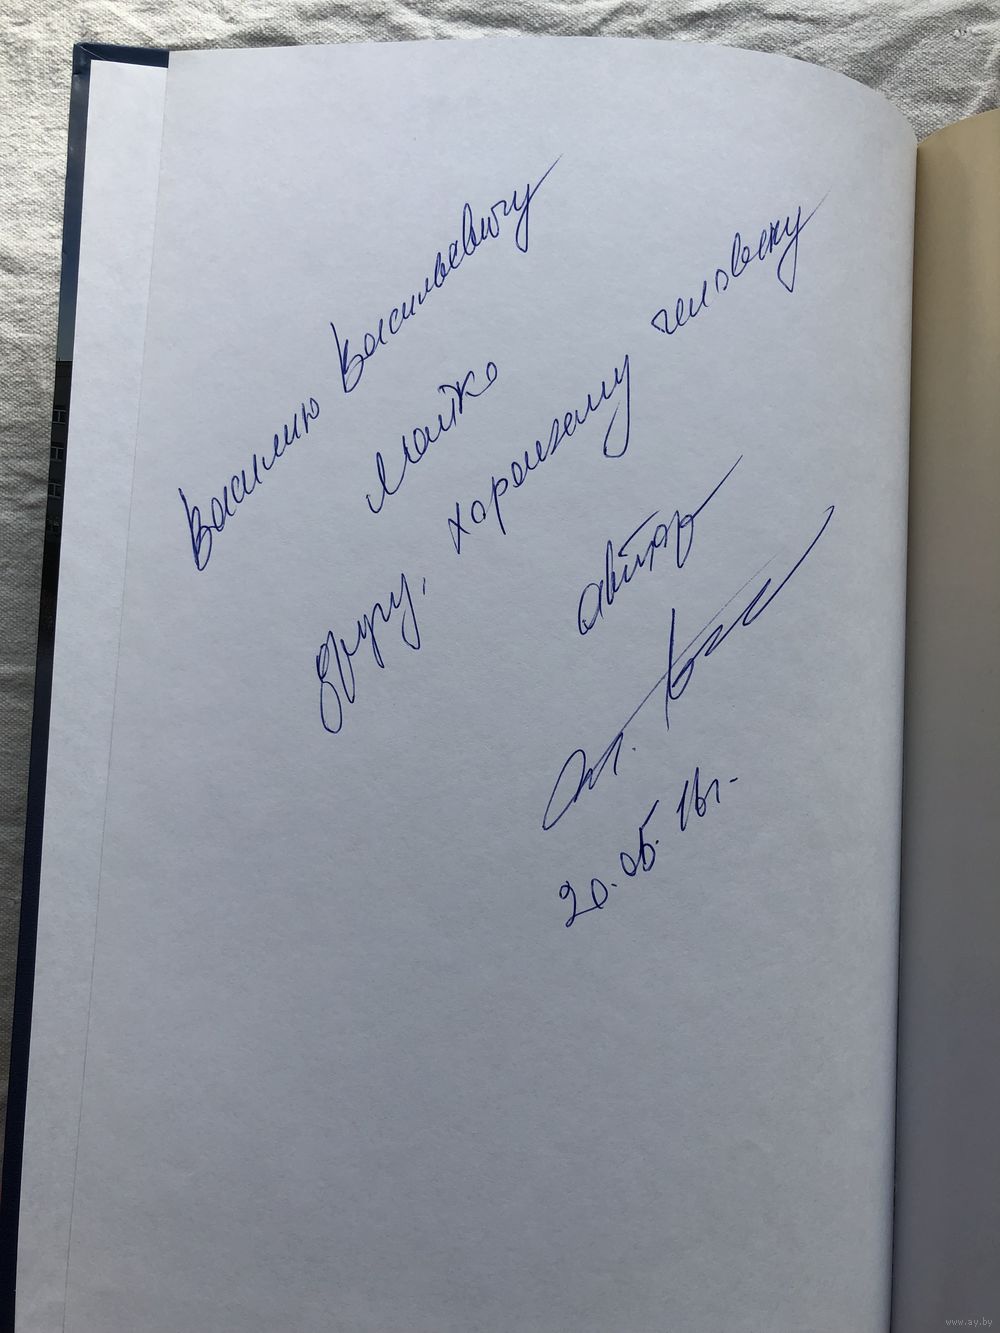 Василию Васильевичу
Малко
другу, хорошему человеку
автор
20.05.16г.
www.ay.by